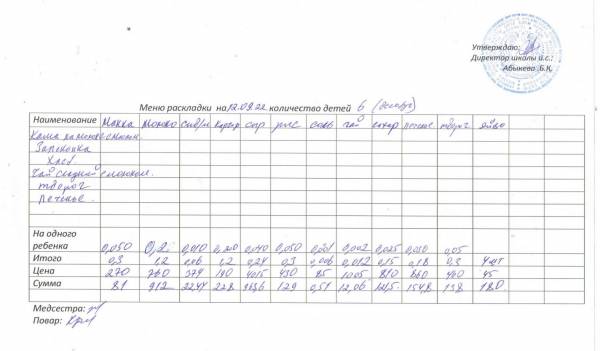 Утверждаю:
Директор школы и.с.:
Абыкева .Б.Қ.
Меню раскладки на 12.09.22 количество детей 6
Наименование Мокка молоко сл/м Картоф сыр рис соль чай сахар печенье творог яйцо
Каша
Запеканка
Хлеб.
Чай сладкий с молоком.
творог
печенье
На одного
ребенка 0,050 0,2 0,010 0,200 0,040 0,050 0,001 0,002 0,025 0,030 0,05
Итого 0,3 1,2 0,06 1,2 0,24 0,3 0,006 0,012 0,15 0,18 0,3 4 шт
Цена 270 760 374 190 4015 430 85 1005 810 860 460 45
Сумма 81 912 22,44 228 963,6 129 0,51 12,06 121,5 154,8 138 180
Медсестра:
Повар: